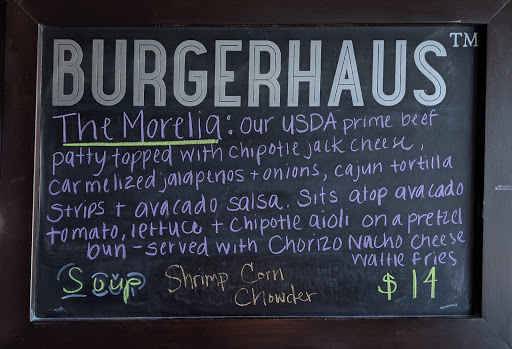 BURGERHAUS™
The Morelia: our USDA prime beef
patty topped with chipotle jack cheese,
carmelized jalapenos + onions, cajun tortilla
strips + avacado salsa. Sits atop avacado
tomato, lettuce + Chipotle aioli on a pretzel
bun - served with Chorizo Nacho Cheese
waffle fries
Soup Shrimp Corn $14
Chowder